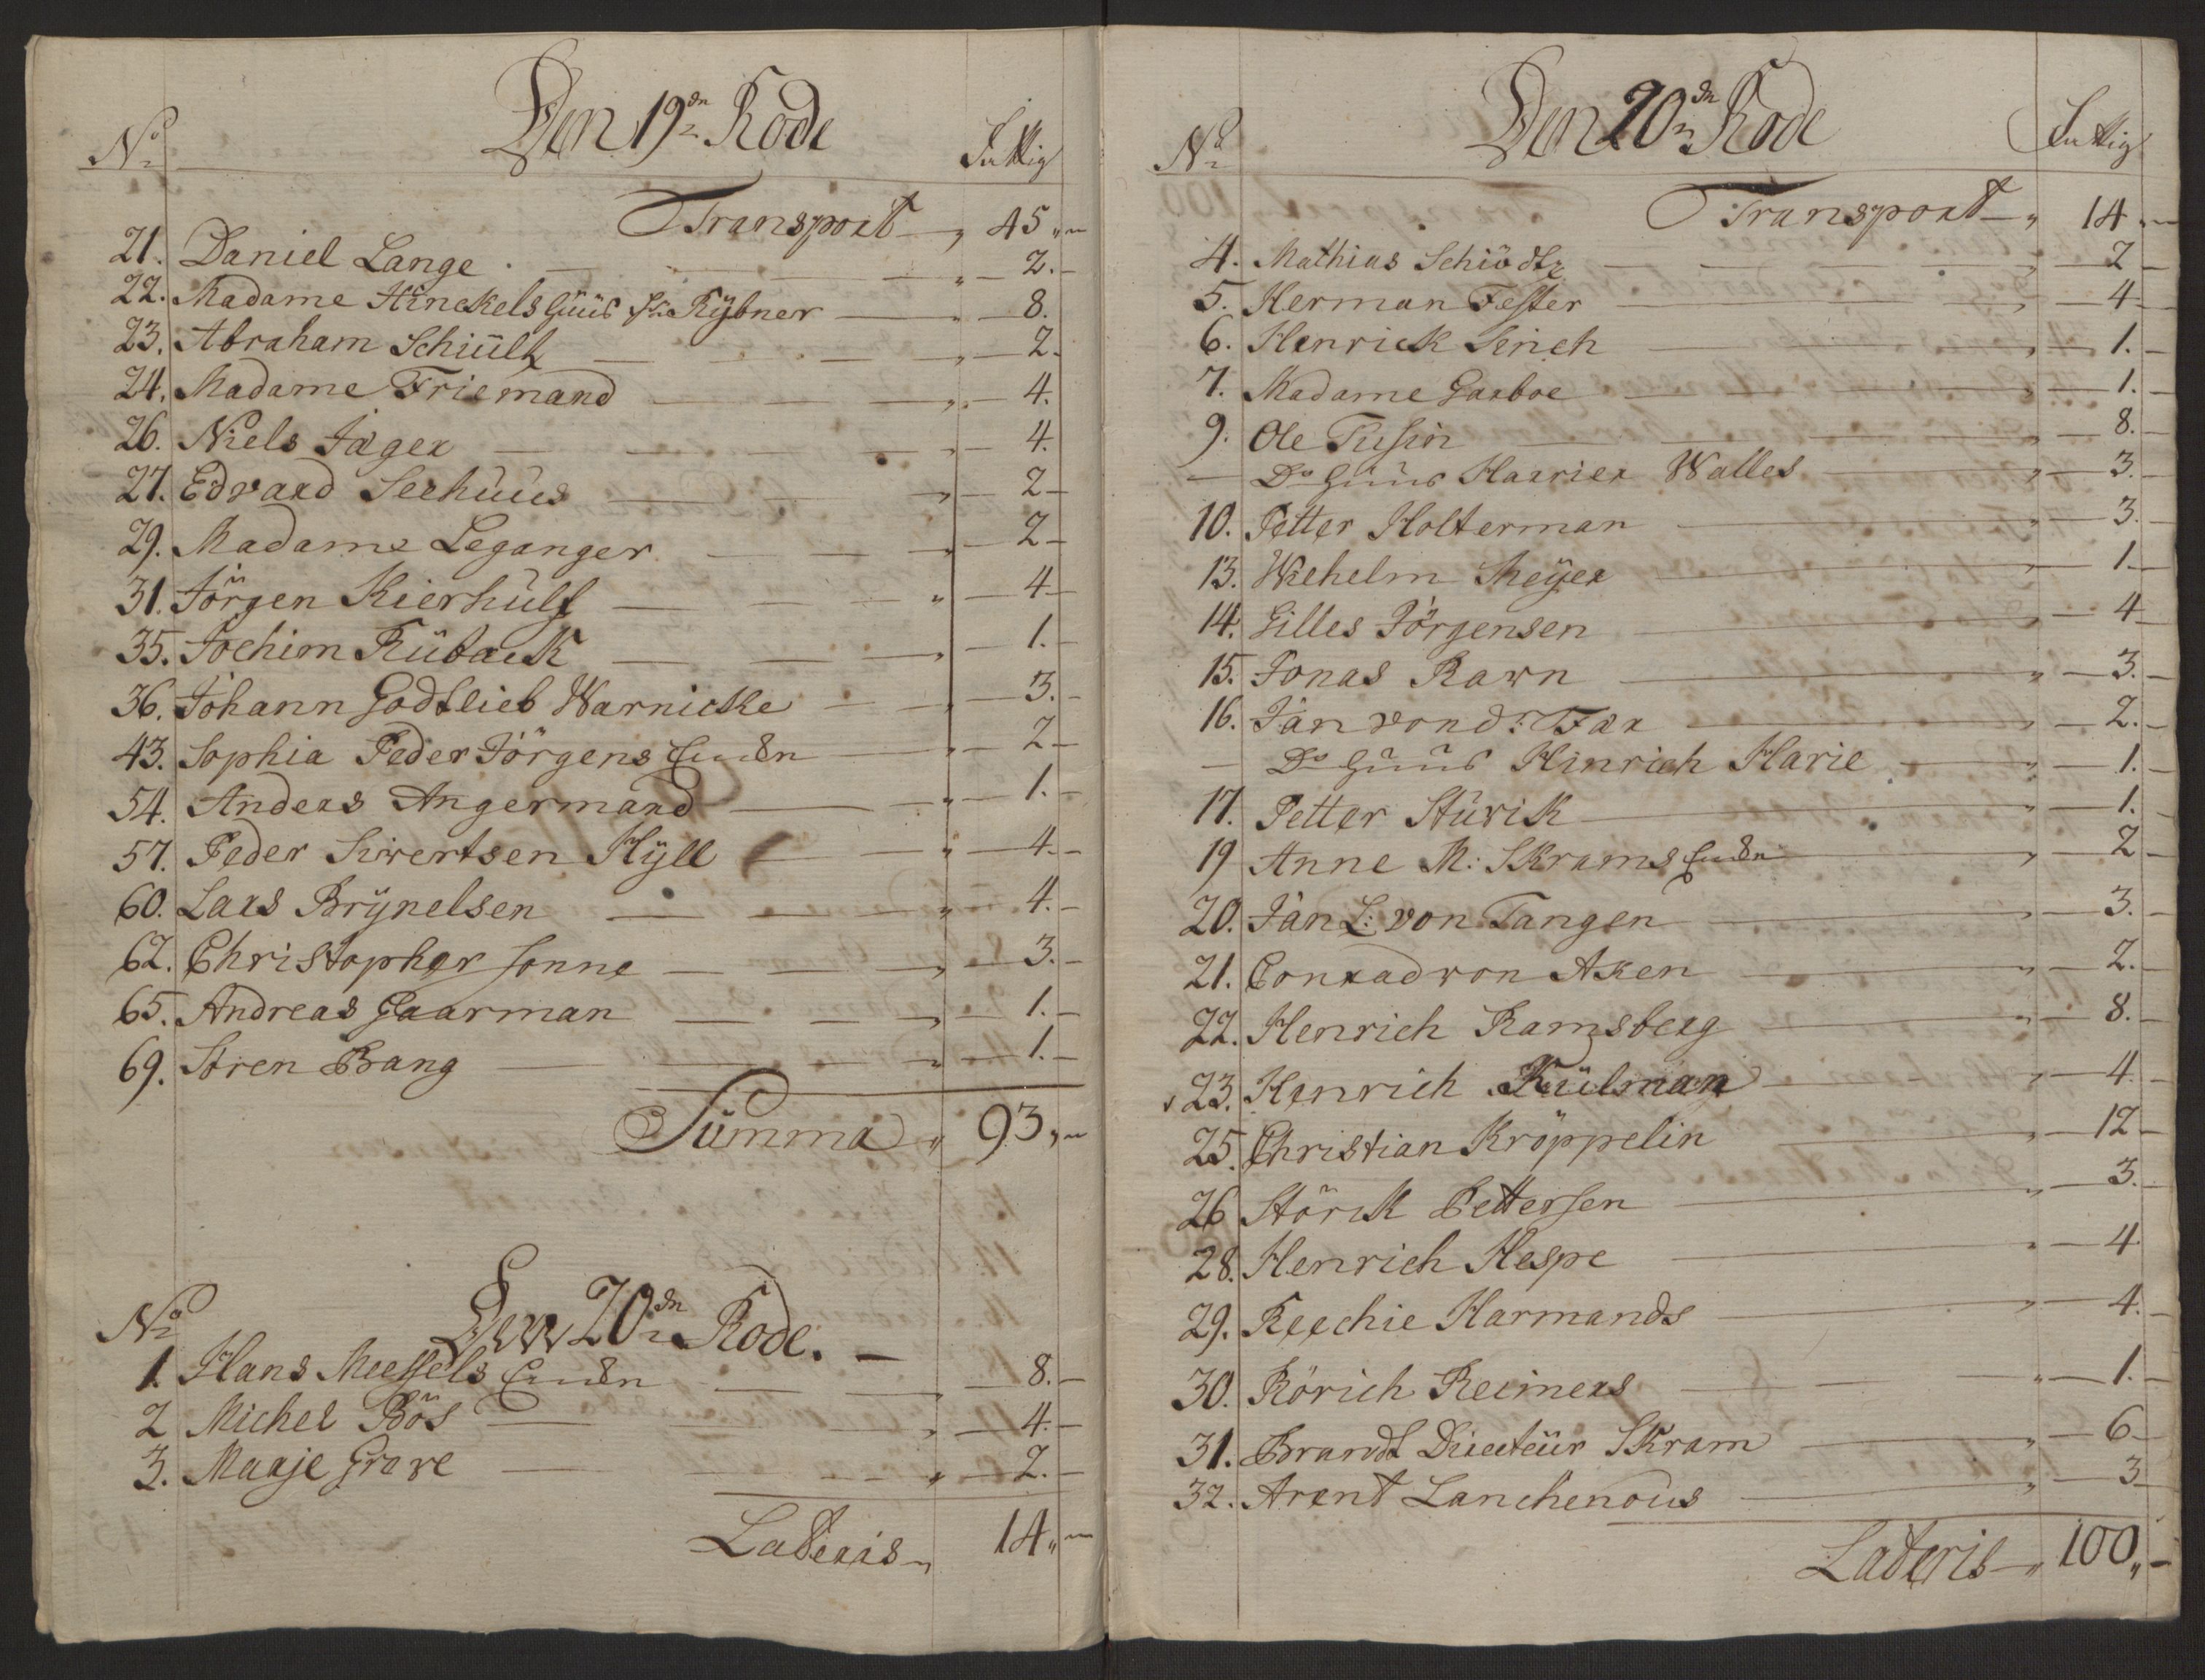 Den 19de Rode
No
Transport 45
21. Daniel Lange 2.
22. Madame Hinckels Huus Fr: Rÿbner 8.
23. Abraham Schiult 2.
24. Madame Friemand 4.
26. Niels Jäger 4.
27. Edvard Seehuus 2
29. Madame Leganger 2
31. Jörgen Kierhulf 4
35. Jochim Rüback 1.
36. Johann Godtlieb Warnicke 3.
43. Sophia Peder Jörgens Enken 2
54. Anders Angermand 1.
57. Peder Siwertsen Hÿll 4.
60. Lars Brÿnelsen 4.
62. Christopher Sonne 3.
65. Andreas Gaarman 1.
69. Sören Bang 1.
Summa 93
No
Den 20de Rode.
1. Hans Meessels Enken 8.
2 Michel Bös 4.
3. Marje Grove 2.
Lateris 14
Den 20de Rode
No
Transport 14
4. Mathias Schiödtz 2
5. Herman Fester 4
6. Henrick Sinch 1.
7. Madame Garboe 1.
9. Ole Tusin 8.
— Do Huus Harrier Walles 3.
10. Petter Holterman 3.
13. Wilhelm Meÿer 1.
14. Gilles Jörgensen 4
15. Jonas Rawn 3.
16. Jan von d: Far 2.
— Do Huus Hinrich Harie 1.
17. Petter Stürik 1.
19 Anne M: Skrams Enken 2
20. Jan L: von Tangen 3.
21. Conrad von Aken 2.
22. Henrich Ramsberg 8.
23. Henrich Külman 4.
25. Christian Kröppelin 12
26 Störik Pettersen 3.
28. Henrich Hespe 4
29. Reechie Harmands 4.
30. Rörich Reimers 1.
31. Brandt Directeür Skram 6
32. Arent Lanchenous 3
Lateris 100